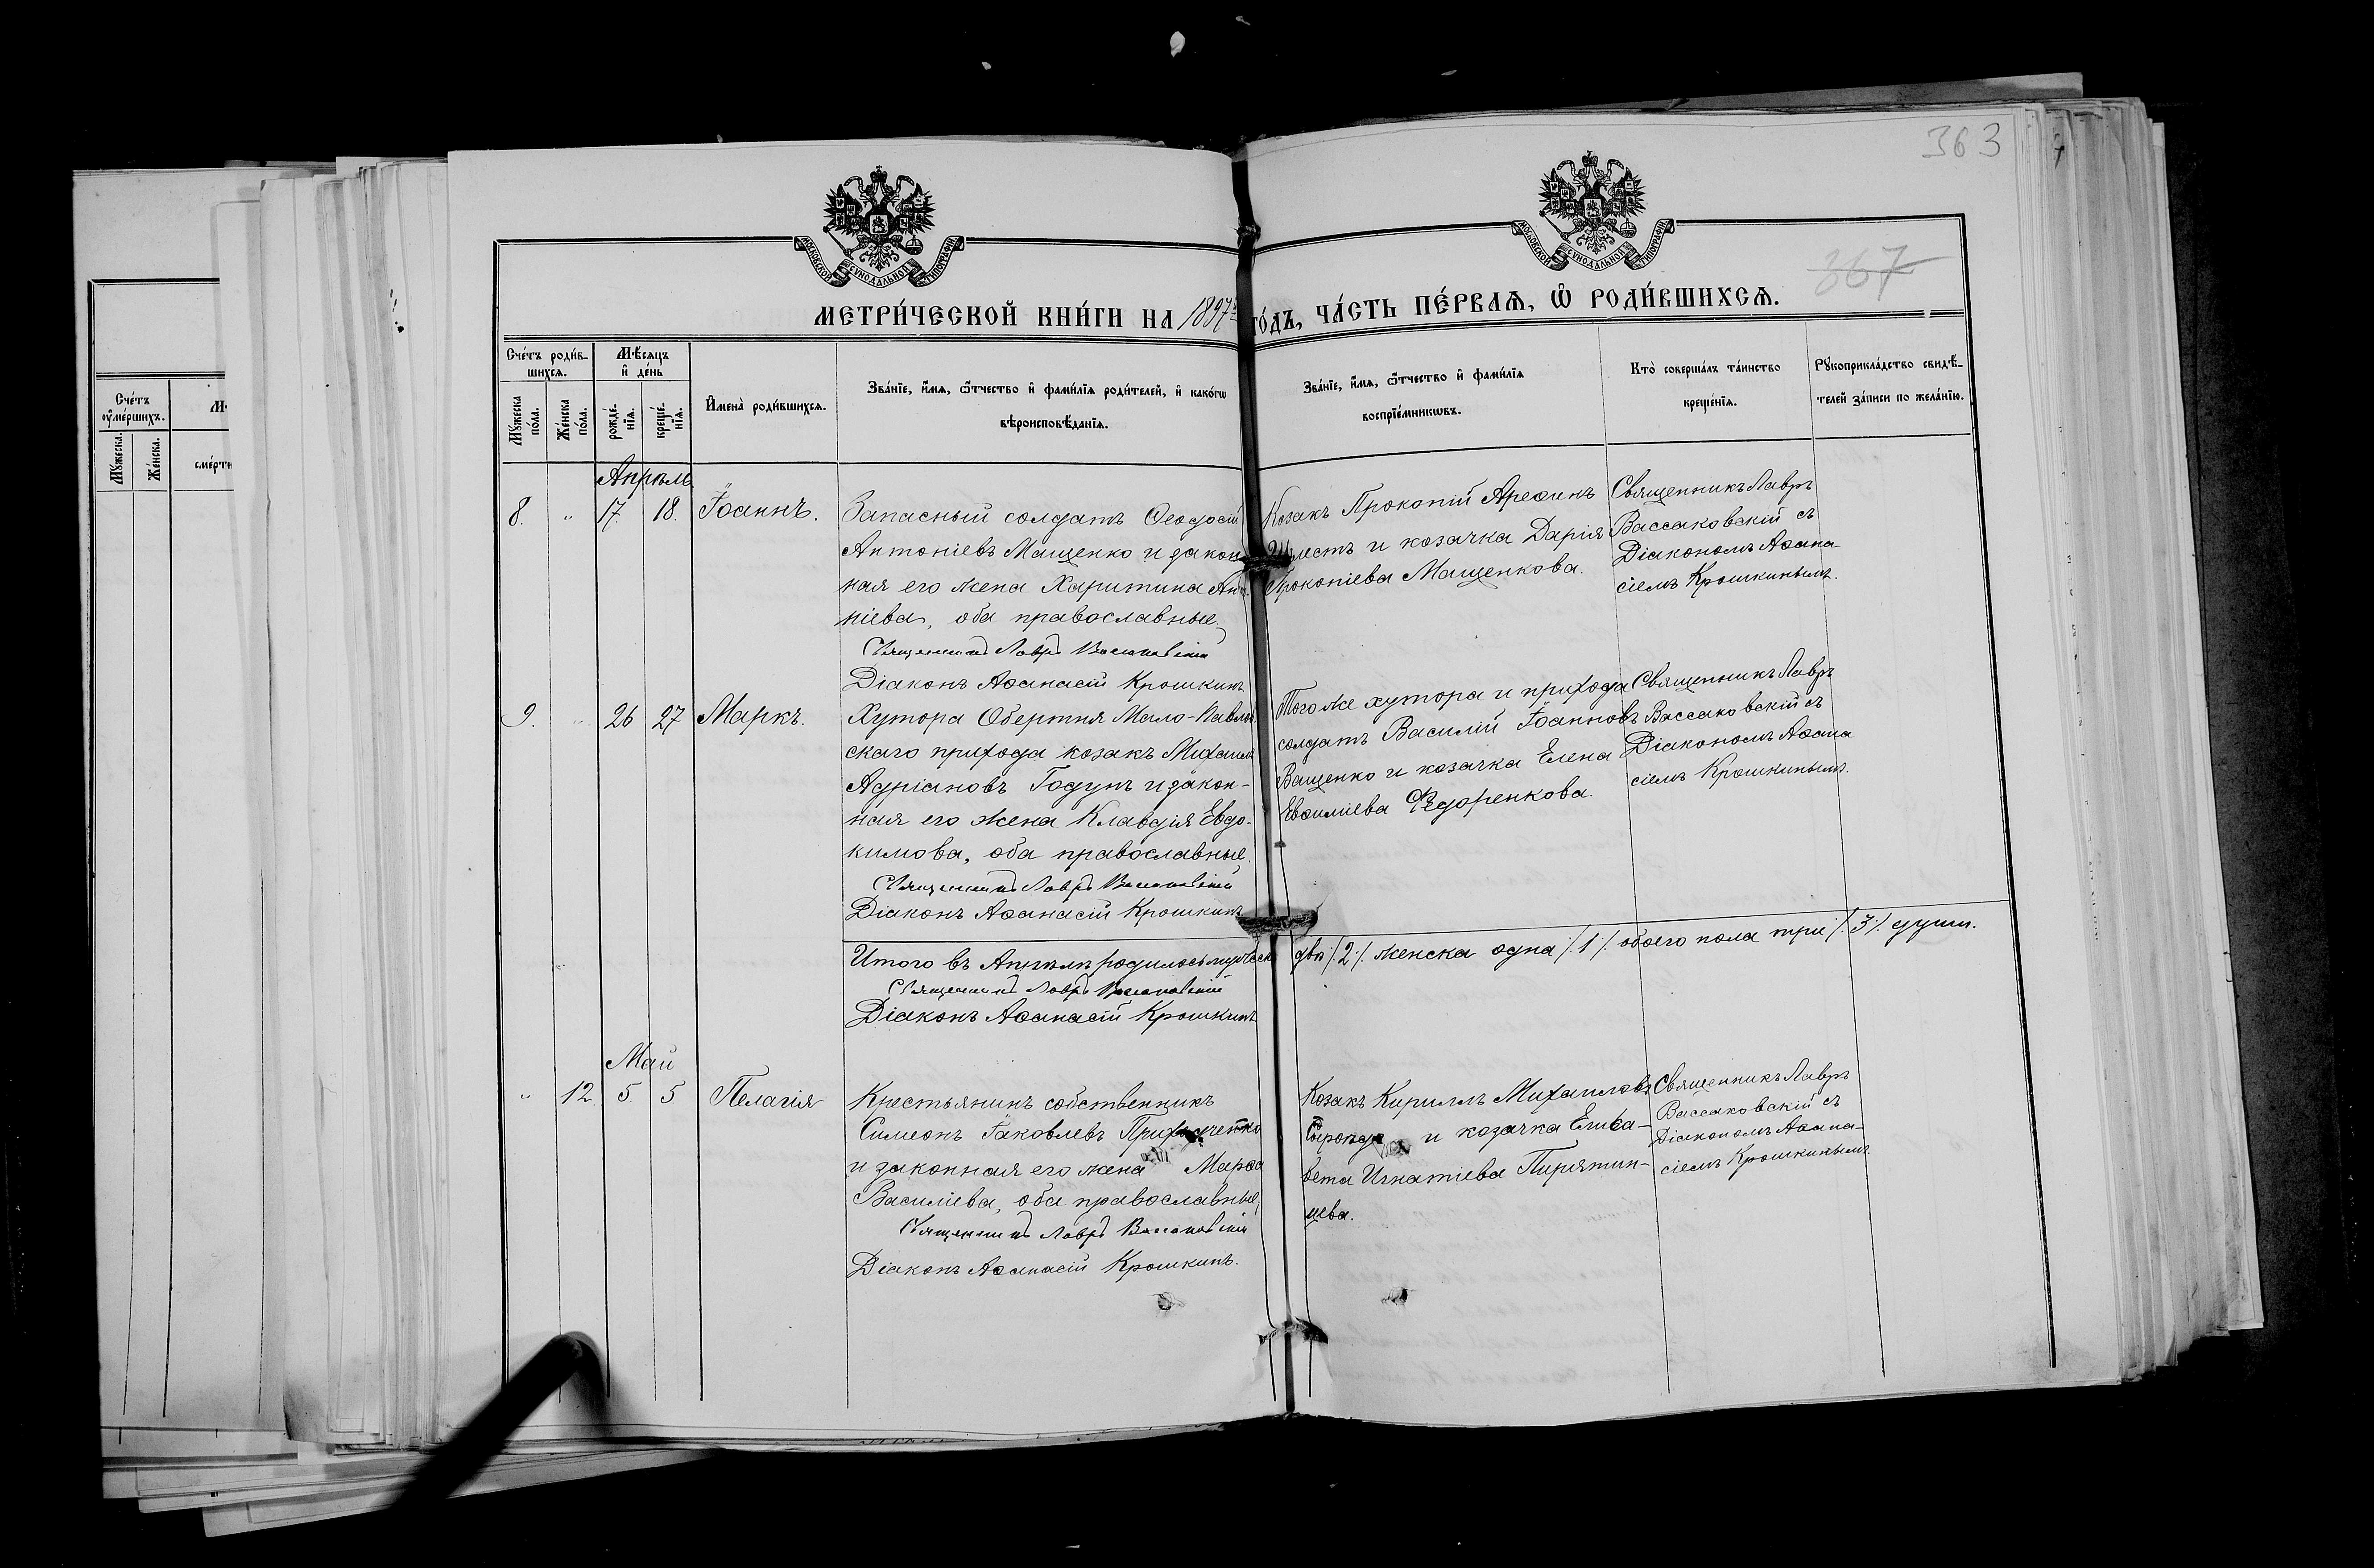 363
367
МОСКОВСКОЙ СѴНОДАЛЬНОЙ ТИПОГРАФІИ
МОСКОВСКОЙ СѴНОДАЛЬНОЙ ТИПОГРАФІИ
МЕТРИ́ЧЕСКОЙ КНИ́ГИ НА 1897 го́дъ, ЧА́СТЬ ПЕ́РВАѦ, Ѡ РОДИ́ВШИХСѦ.
Сче́тъ
оуме́ршихъ.
Му́жеска.
Же́нска.
Сче́тъ роди́в-
шихсѧ.
Му́жеска по́ла.
Же́нска по́ла.
Мѣ́сѧцъ
и де́нь
рожде́-нїѧ.
креще́-нїѧ.
Имена̀ роди́вшихсѧ.
Зва́нїе, и́мѧ, ѻ́тчество и фами́лїѧ роди́телей, и како́гѡ
вѣроисповѣ́данїѧ.
Зва́нїе, и́мѧ, ѻ́тчество и фами́лїѧ
воспрїе́мникѡвъ.
Кто̀ соверша́лъ та́инство
креще́нїѧ.
Рꙋкоприкла́дство свидѣ́-
телей за́писи по жела́нїю.
Апрѣль
8. " 17. 18. Іоаннъ.
Запасный солдатъ Ѳеодосій
Антоніевъ Мащенко и закон
ная его жена Харитина
ніева, оба православные.
Священникъ Лавръ Вассаковскій
Діаконъ Аѳанасій Крошкинъ
Козакъ Прокопій Ареѳинъ
Шместь и козачка Дарія
Прокопіева Мащенкова.
Священникъ Лавръ
Вассаковскій съ
Діакономъ Аѳана-
сіемъ Крошкинымъ.
9. " 26 27 Маркъ.
Хутора Обертня Мало-Павлов
скаго прихода козакъ Михаилъ
Адріановъ Годунъ и закон-
ная его жена Клавдія Евдо-
кимова, оба православные.
Священникъ Лавръ Вассаковскій
Діаконъ Аѳанасій Крошкинъ
Того же хутора и прихода
солдатъ Василій Іоанновъ
Ващенко и козачка Елена
Евѳиміева Ѳедоренкова.
Священникъ Лавръ
Вассаковскій съ
Діакономъ Аѳана
сіемъ Крошкинымъ.
Итого въ Апрѣлѣ родилось мужеска два /.2./. женска одна /.1./. обоего пола три /.3./. души.
Священникъ Лавръ Вассаковскій
Діаконъ Аѳанасій Крошкинъ
Май
" 12. 5. 5 Пелагія
Крестьянинъ собственникъ
Симеонъ Іаковлевъ
и законная его жена Марѳа
Василіева, оба православные,
Священникъ Лавръ Вассаковскій
Діаконъ Аѳанасій Крошкинъ.
Козакъ Кириллъ Михаиловъ
и козачка Елиса-
вета Игнатіева Пирятин-
цева.
Священникъ Лавръ
Вассаковскій съ
Діакономъ Аѳана-
сіемъ Крошкинымъ